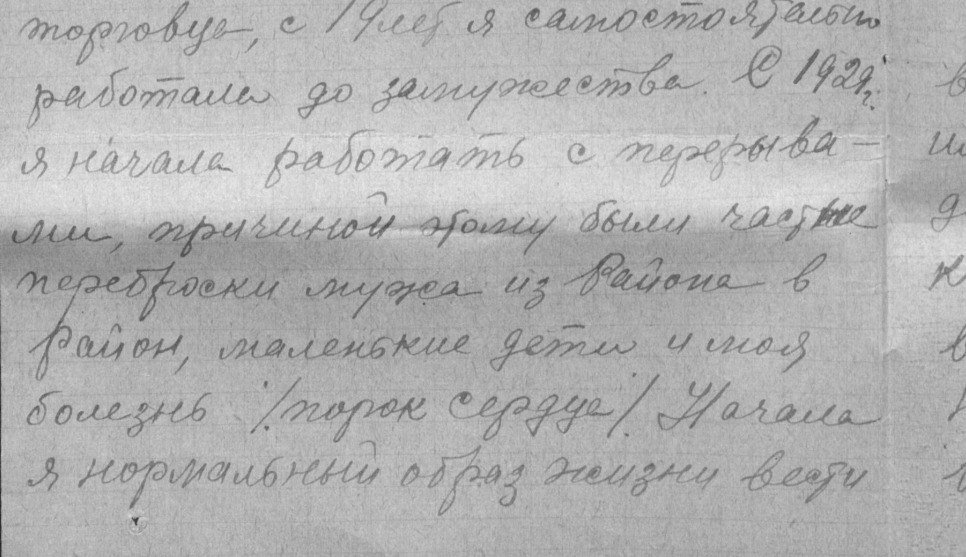 торговца, с 19 лет я самостоятельно
работала до замужества. С 1929 г.
я начала работать с перерыва-
ми, причиной этому были частые
переброски мужа из Района в
Район, маленькие дети и моя
болезнь /порок сердца/. Начала
я нормальный образ жизни вести